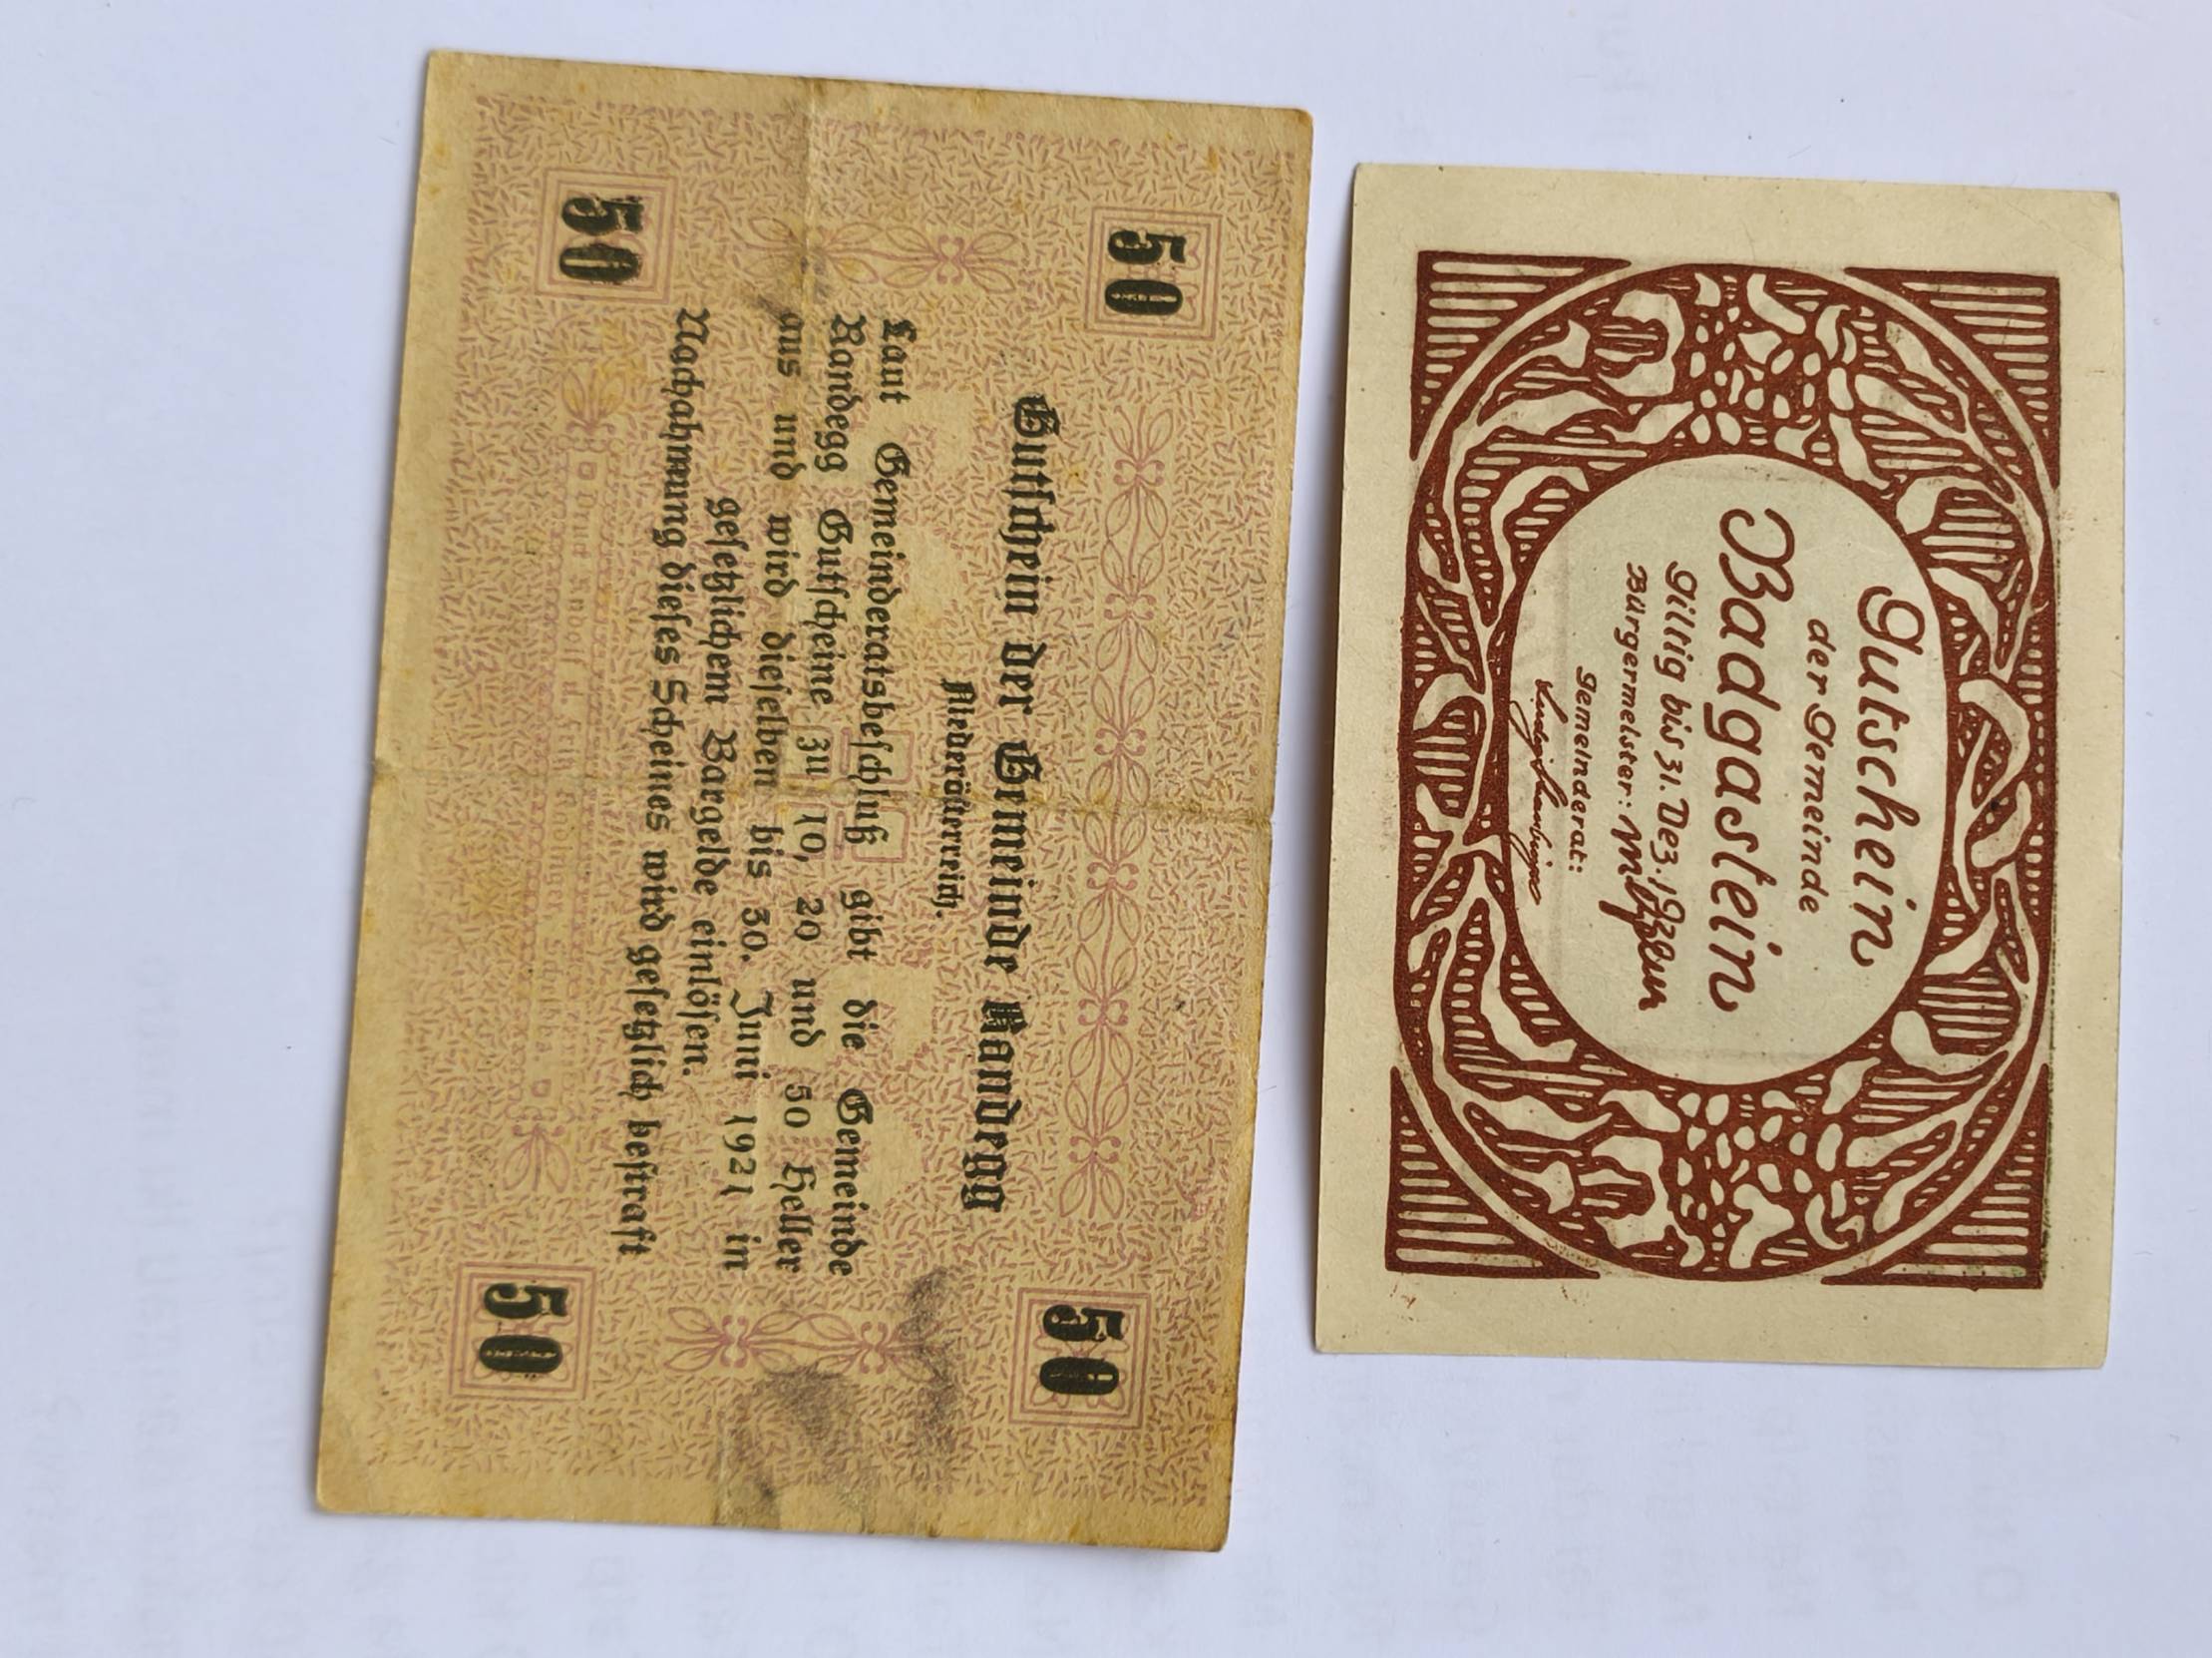 50
50
Gutschein der Gemeinde Randegg
Niederösterreich.
Laut Gemeinderatsbeschluß gibt die Gemeinde
Randegg Gutscheine zu 10, 20 und 50 Heller
aus und wird dieselben bis 30. Juni 1921 in
gesetzlichem Bargelde einlösen.
Nachahmung dieses Scheines wird gesetzlich bestraft
50
50
Druck Rudolf u. Fritz Höbinger Scheibbs
Gutschein
der Gemeinde
Badgastein
Giltig bis 31. Dez. 1920
Bürgermeister:
Gemeinderat: